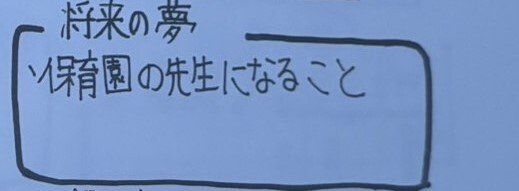 将来の夢
保育園の先生になること